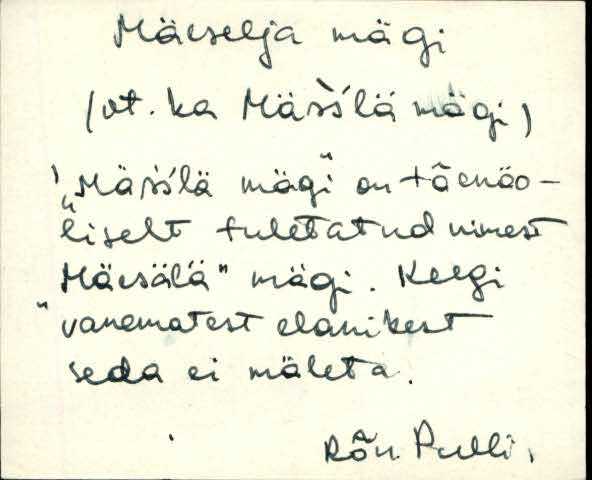 Mäeselja mägi
(vt. ka Mäs̀s̀lä mägi)
„Mäs̀s̀lä mägi" on tõenäo-
liselt tuletatud nimest
„Mäesälä" mägi. Keegi
vanematest elanikest
seda ei mäleta.
Rõu. Pulli.